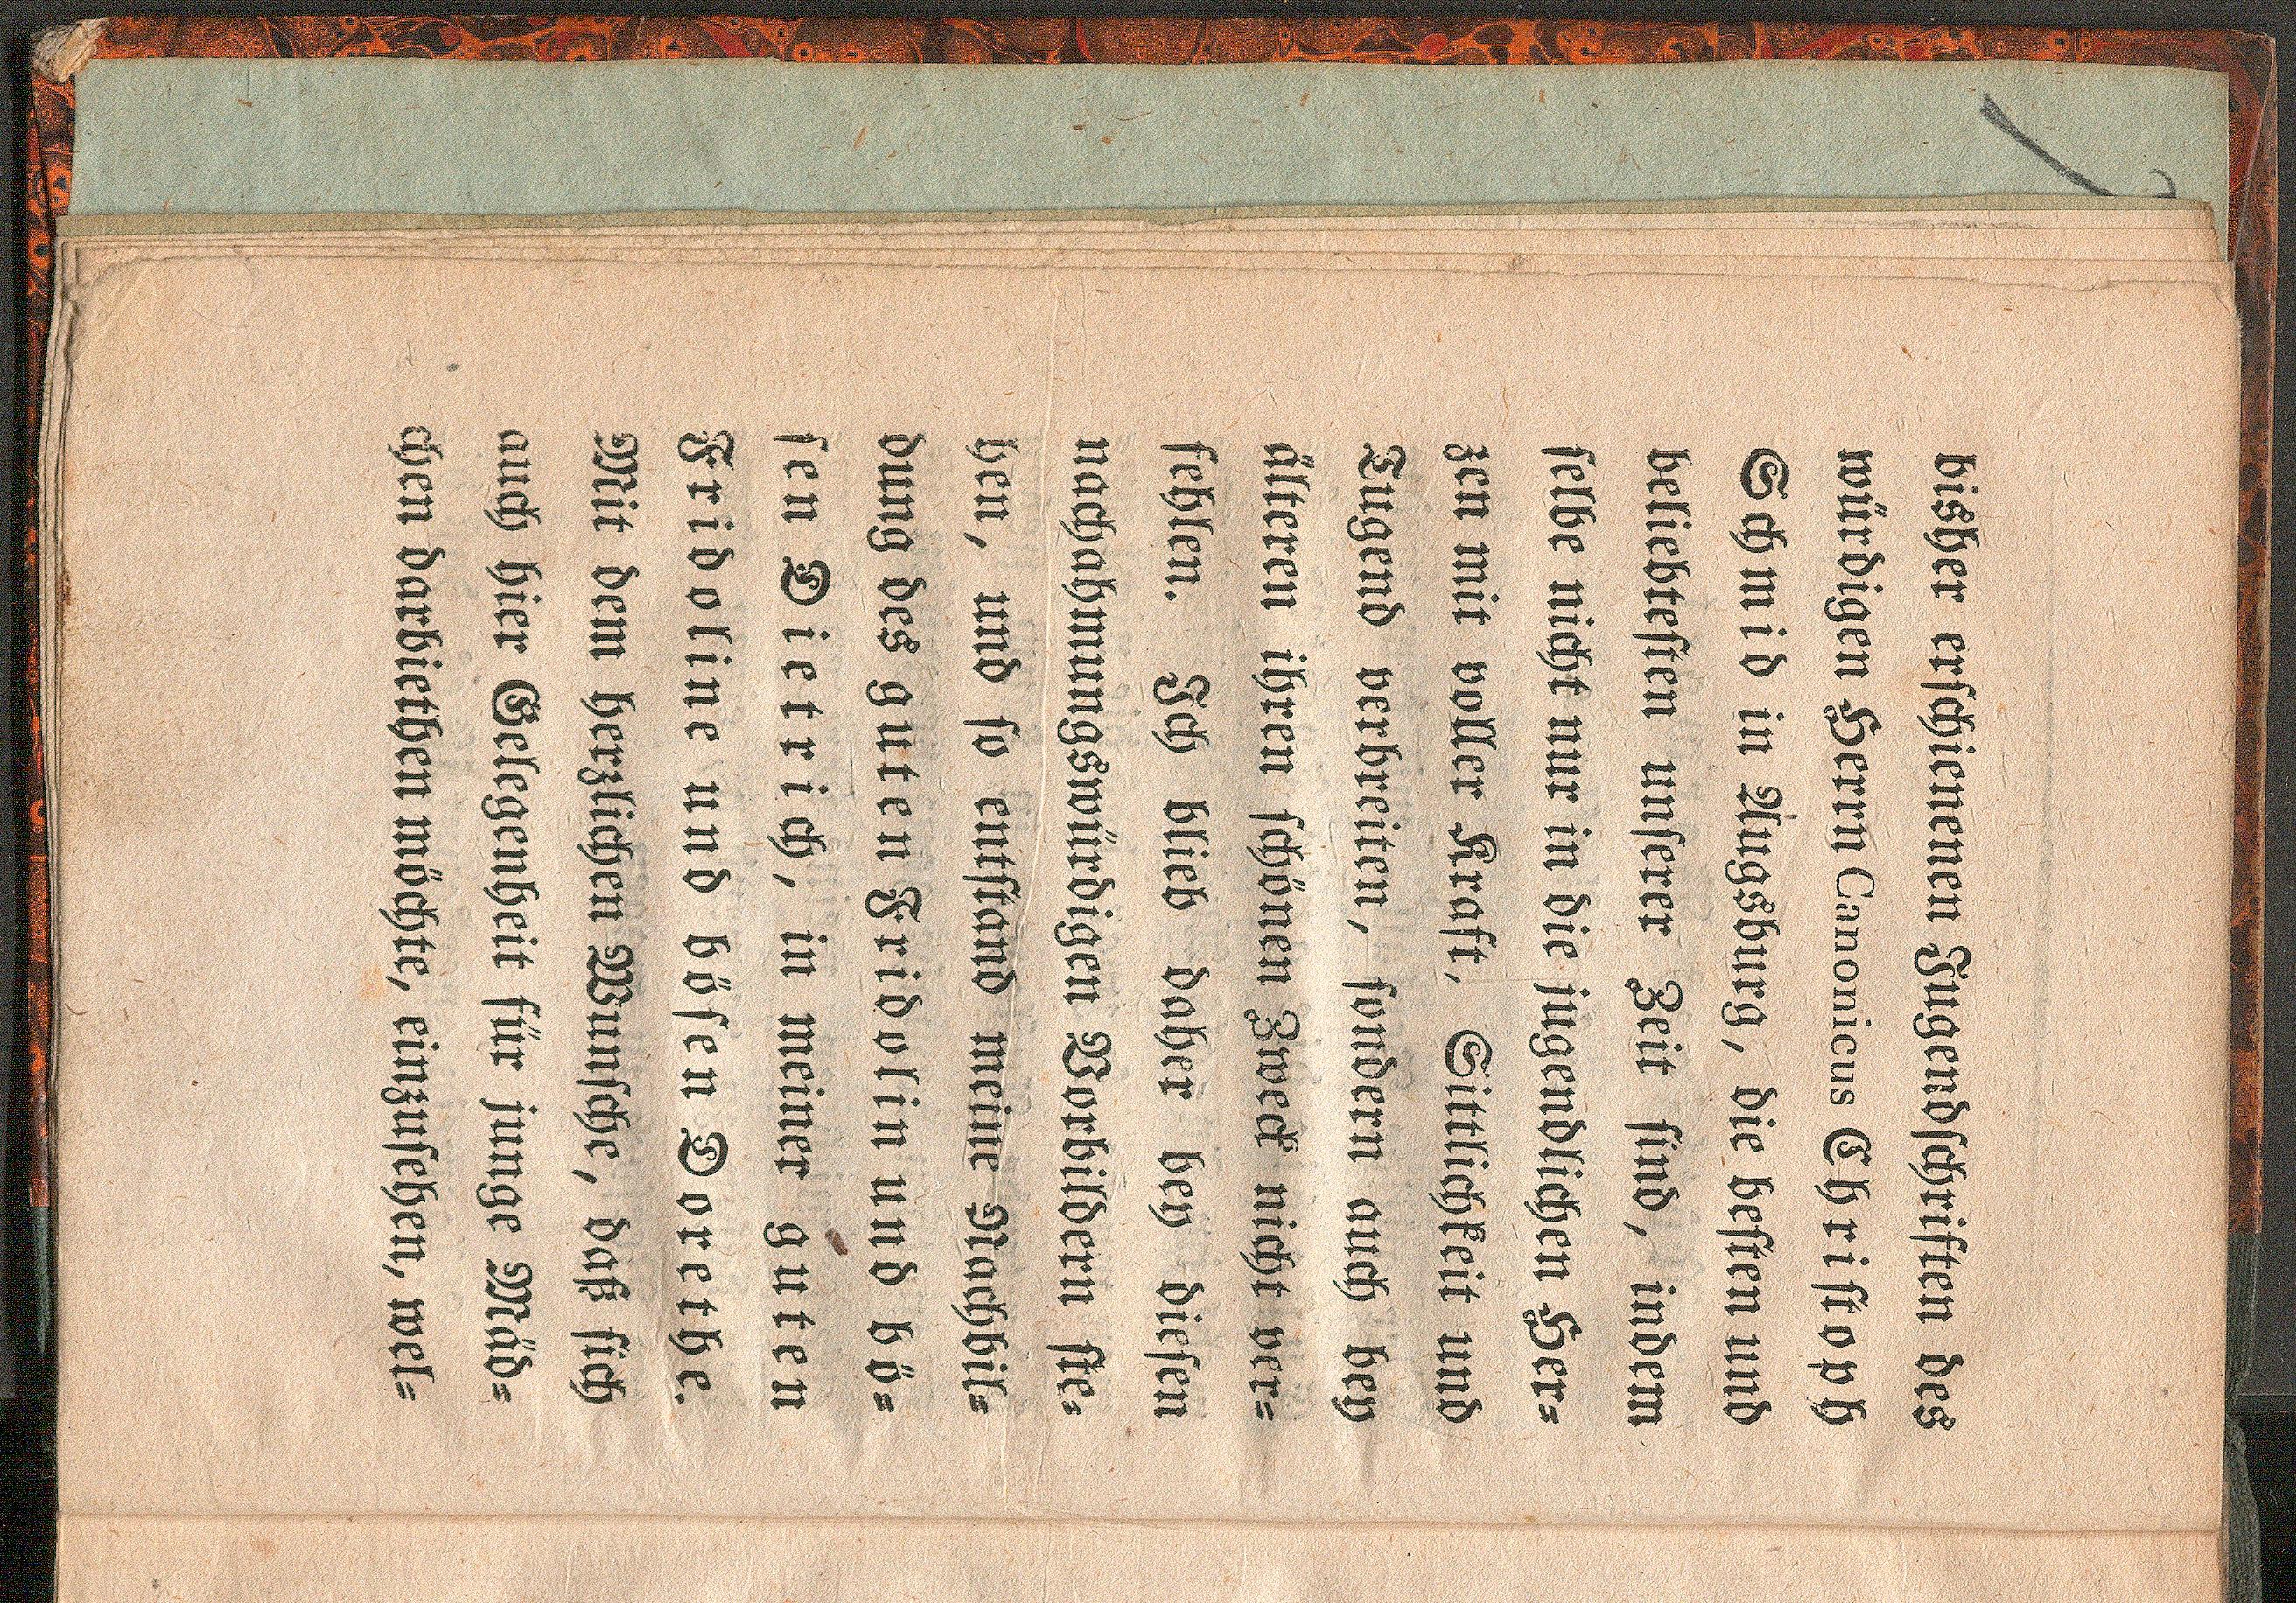 bisher erschienenen Jugendschriften des
würdigen Herrn Canonicus Christoph
Schmid in Augsburg, die besten und
beliebtesten unserer Zeit sind, indem
selbe nicht nur in die jugendlichen Her=
zen mit voller Kraft, Sittlichkeit und
Tugend verbreiten, sondern auch bey
älteren ihren schönen Zweck nicht ver=
fehlen. Ich blieb daher bey diesen
nachahmungswürdigen Vorbildern ste=
hen, und so entstand meine Nachbil=
dung des guten Fridolin und bö=
sen Dietrich, in meiner guten
Fridoline und bösen Dorethe.
Mit dem herzlichen Wunsche, daß sich
auch hier Gelegenheit für junge Mäd=
chen darbiethen möchte, einzusehen, wel=